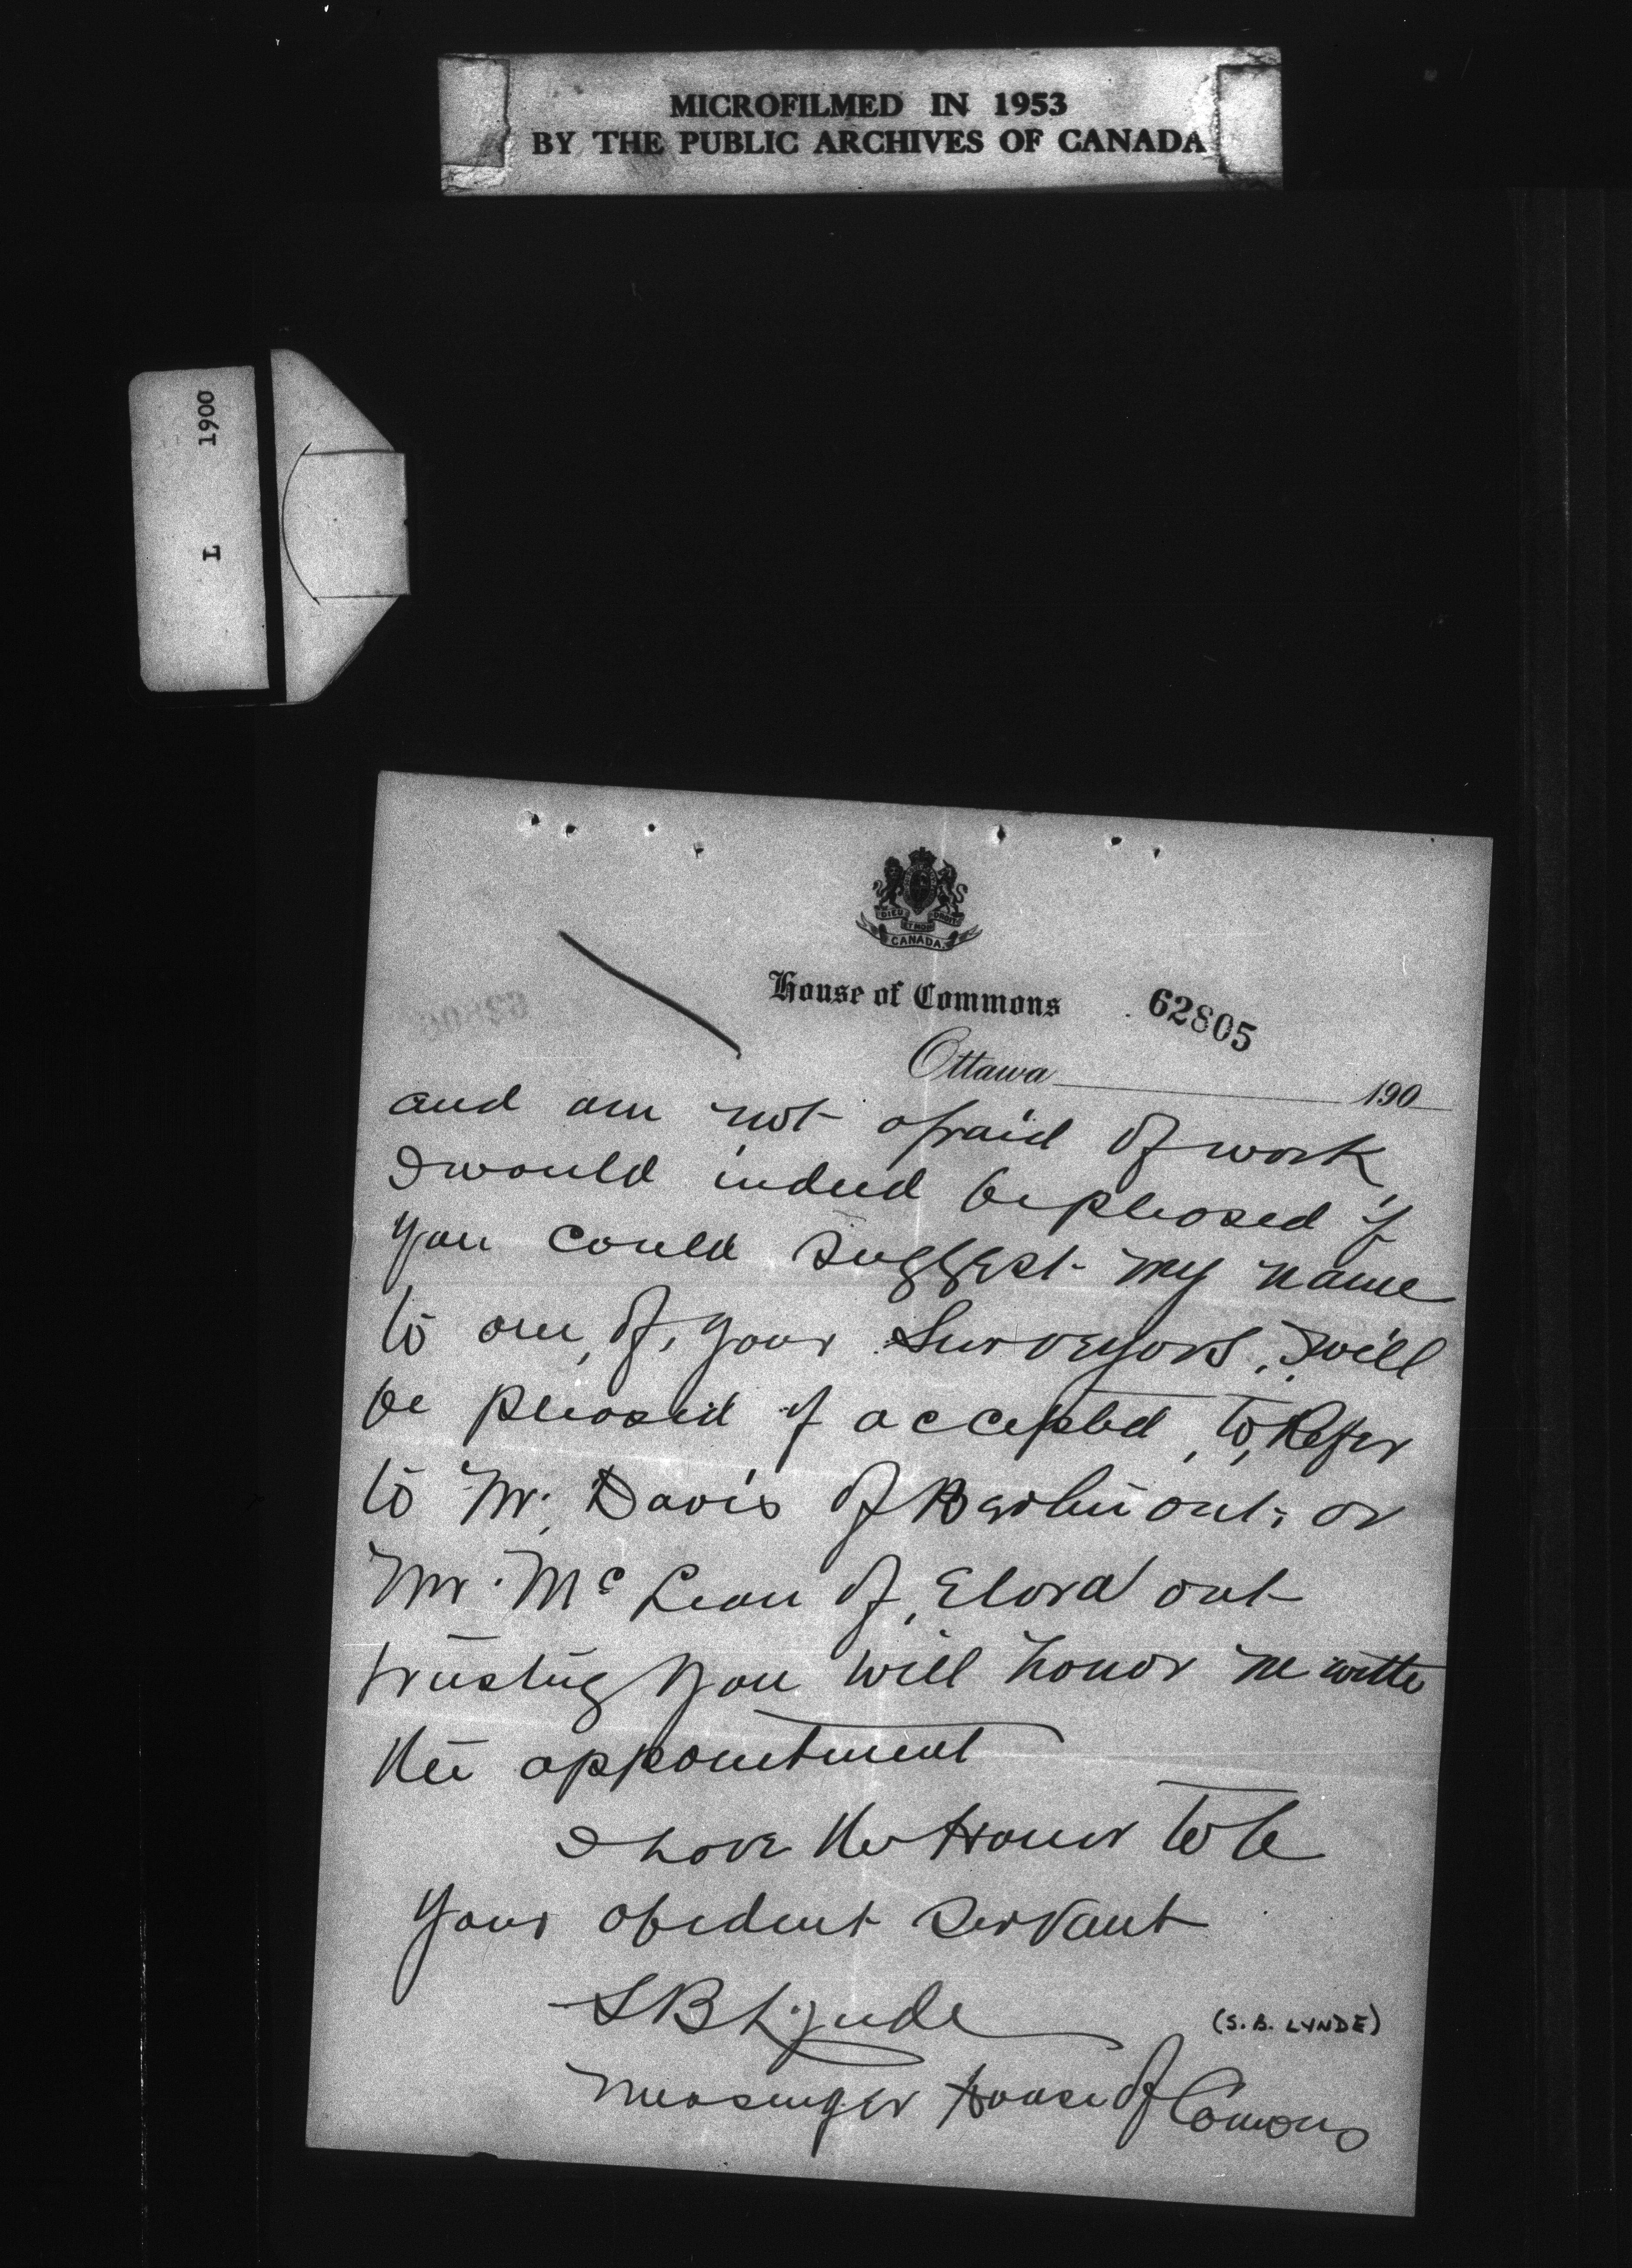 MICROFILMED IN 1953
BY THE PUBLIC ARCHIVES OF CANADA
L 1900
DIEU ET MON DROIT
CANADA
House of Commons
62805
Ottawa 190
and am not afraid of work
I would indeed be pleased if
you could suggest my name
to one, of, your Surveyors, I will
be pleased if accepted, to, Refer
to Mr. Davis of Berlin Ont; or
Mr. Mc Lean of, Elora Ont
trusting you will honor me with
the appointment
I have the Honor to be
your obedient Servant
S B Lynde
(S. B. LYNDE)
Messenger House of Comons